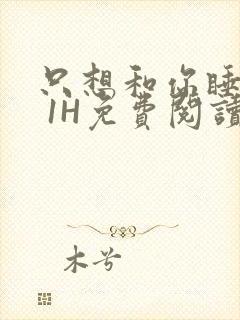 只想和你睡
1H免費閱讀
木兮